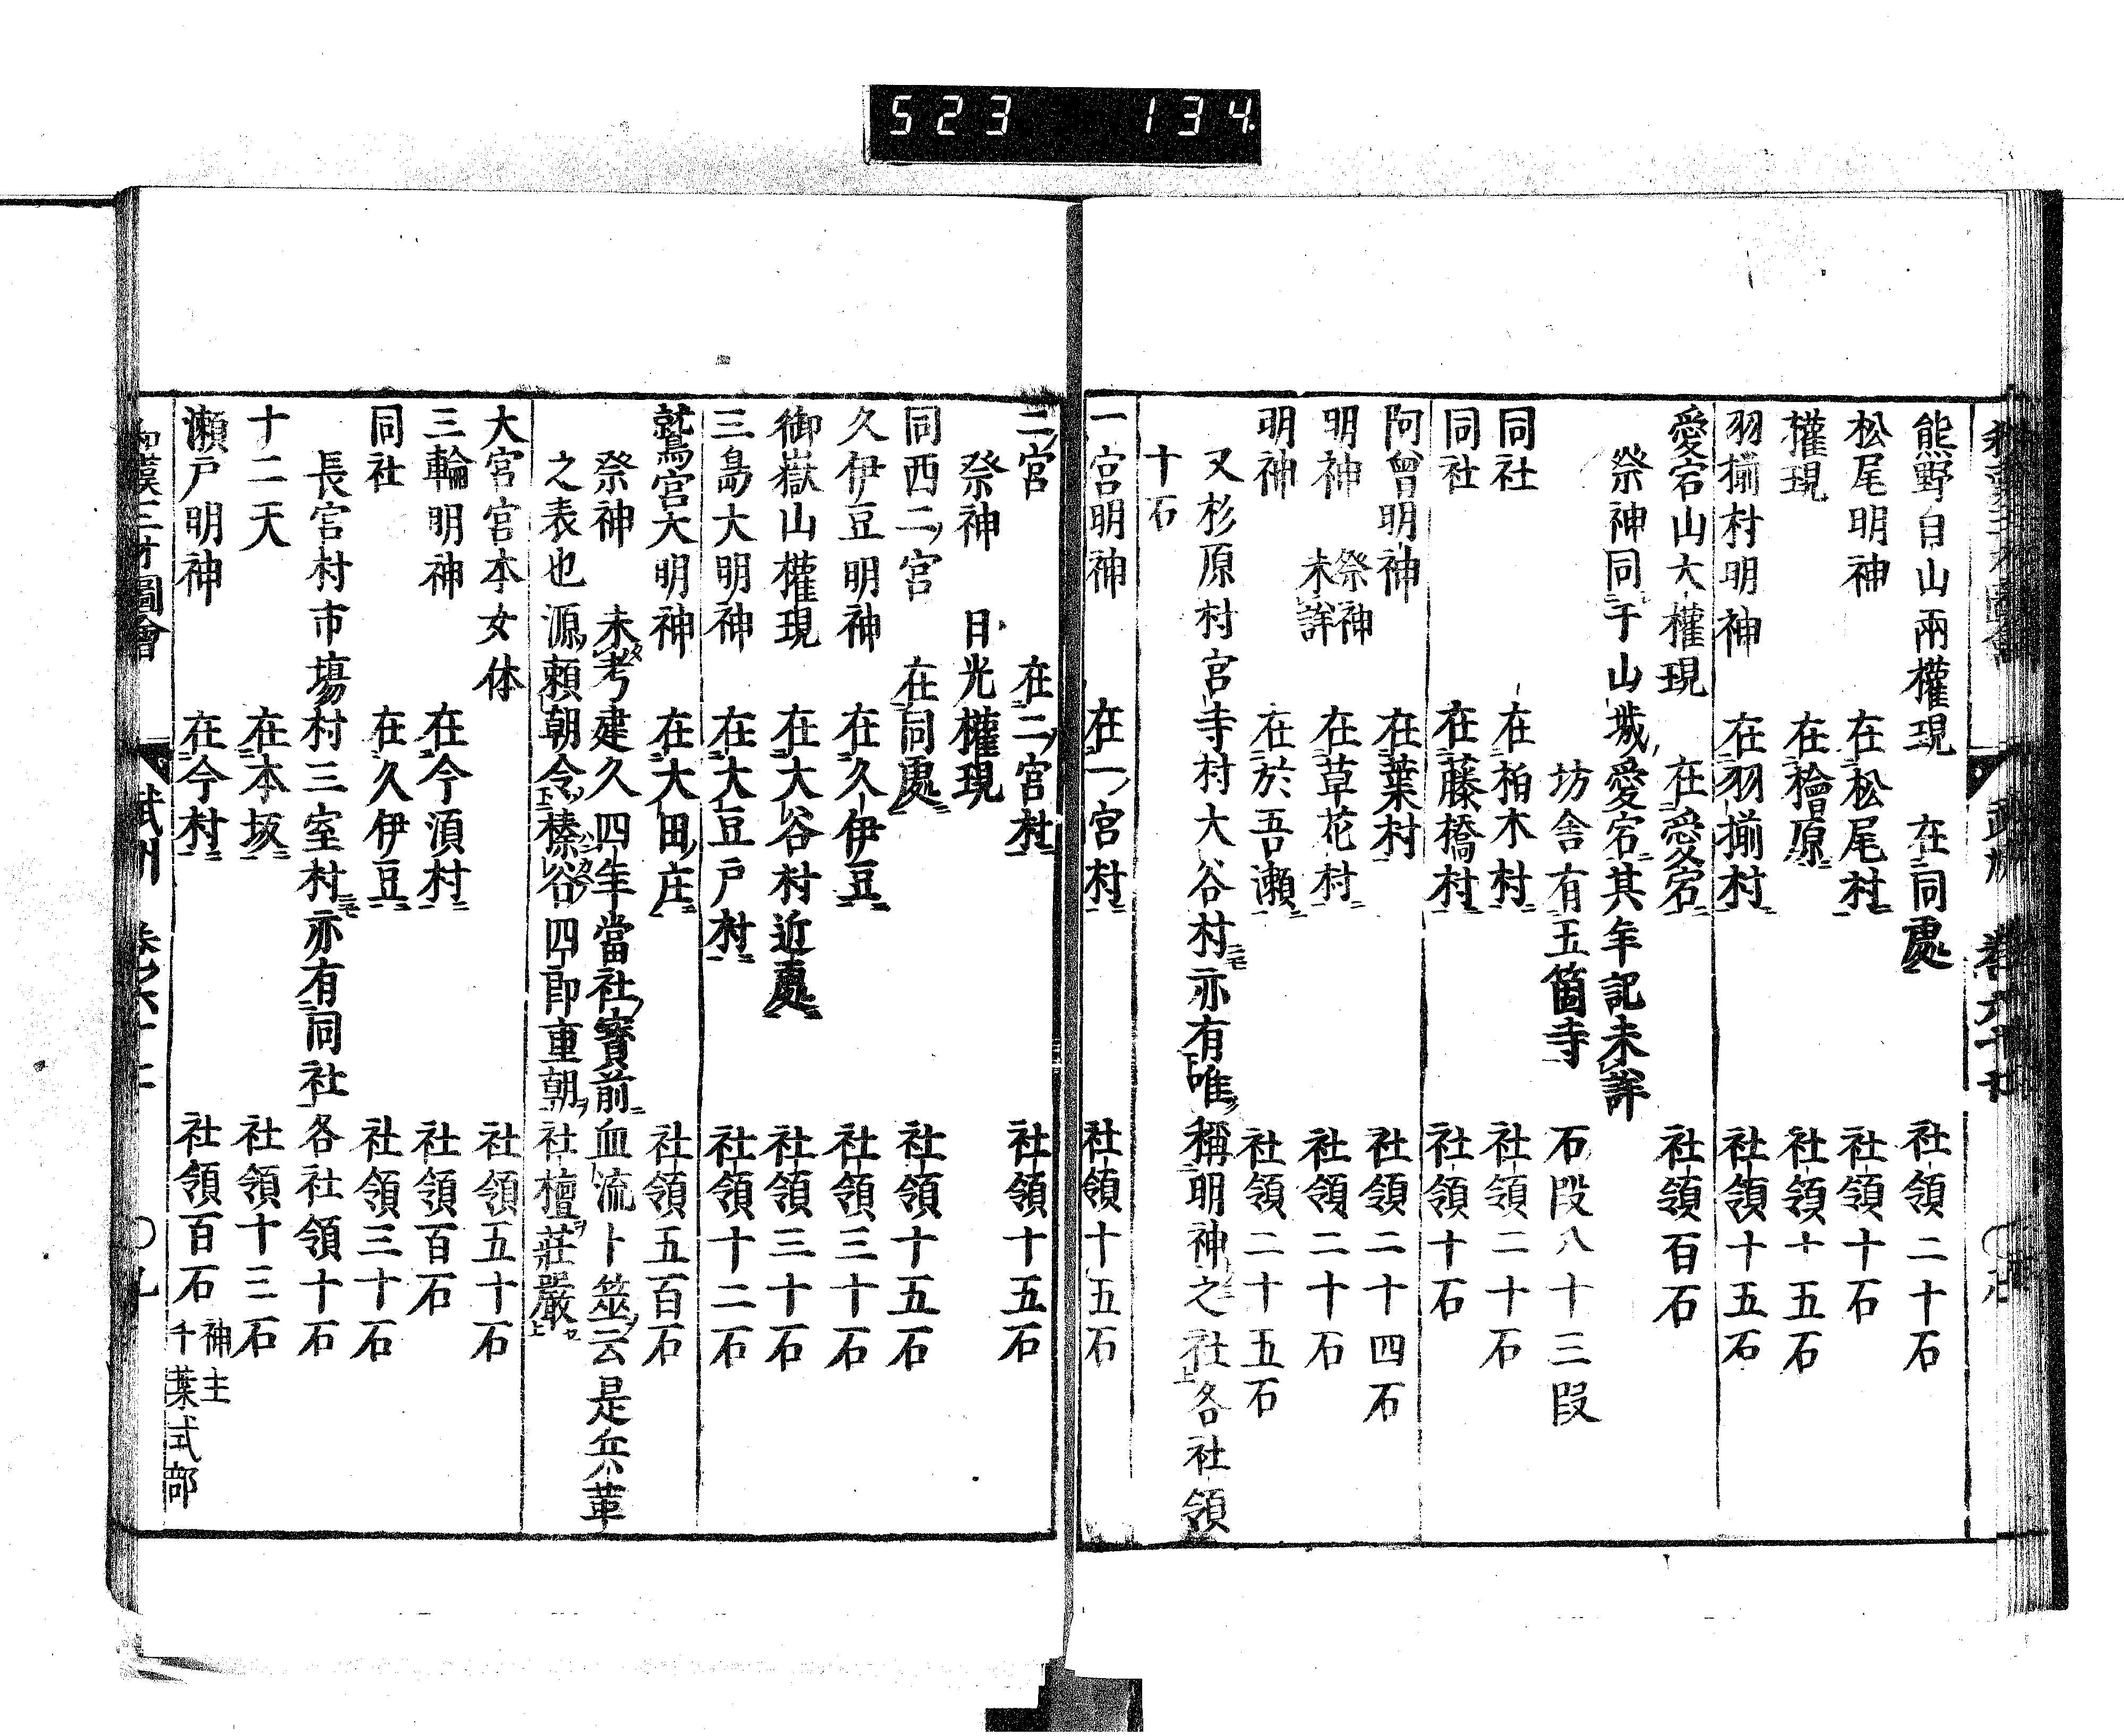 523 134
熊野白山兩權現 在同處 社領二十石
松尾明神 在松尾村 社領十石
權現 在檜原 社領十五石
羽揃村明神 在羽揃村 社領十五石
愛宕山大權現 在愛宕 社領百石
祭神同于山城愛宕其年記未詳
坊舎有五箇寺 石段八十三段
同社 在柏木村 社領二十石
同社 在藤橋村 社領十石
阿曾明神 在葉村 社領二十四石
明神 祭神未詳 在草花村 社領二十石
明神 在於吾瀬 社領二十五石
又杉原村宮寺村大谷村亦有唯稱明神之社各社領
十石
一宮明神 在一宮村 社領十五石
二宮 在二宮村 社領十五石
祭神 日光權現
同西二宮 在同處 社領十五石
久伊豆明神 在久伊豆 社領三十石
御嶽山權現 在大谷村近處 社領三十石
三島大明神 在大豆戸村 社領十二石
鷲宮大明神 在大田庄 社領五百石
祭神 未考建久四年當社寳前血流卜筮云是兵革
之表也源頼朝令榛谷四郎重朝社檀莊嚴
大宮宮本女体 社領五十石
三輪明神 在今須村 社領百石
同社 在久伊豆 社領三十石
長宮村市場村三室村亦有同社各社領十石
十二天 在本坂 社領十三石
瀬戸明神 在今村 社領百石 神主千葉式部
和漢三才圖會 武州 巻六十七 〇九